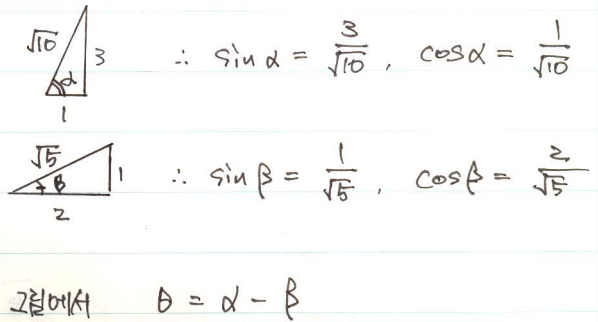 √10 3 α 1 ∴ sin α = 3/√10 , cos α = 1/√10
√5 1 β 2 ∴ sin β = 1/√5 , cos β = 2/√5
그림에서 θ = α - β